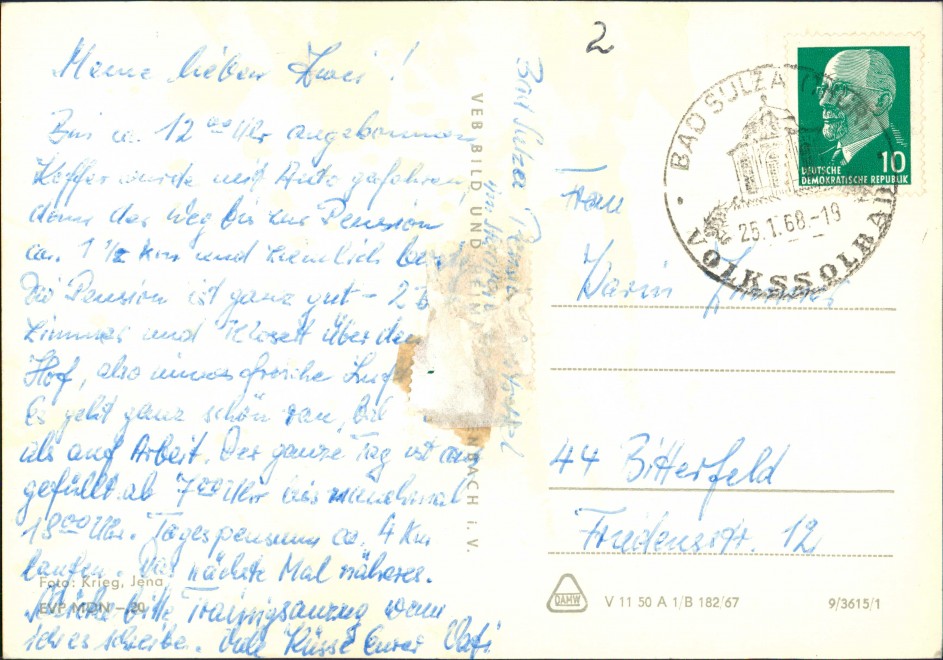 2
Meine lieben Zwei!
Bin ca. 12 00 Uhr angekommen,
Koffer wurde mit Auto gefahren,
denn der Weg bis zur Pension
ca. 1 1/2 km und ziemlich
Die Pension ist ganz gut - 2 B
Zimmer und Klosett über den
Hof, also immer frische Luf
Es geht ganz schön ran,
als auf Arbeit. Der ganze Tag ist aus
gefüllt ab 7 00 Uhr bis manchmal
18 00 Uhr. Tagespensum ca. 4 Km
laufen. Das nächste Mal näheres.
Schicke bitte Trainigsanzug wenn
ich es schreibe. Viele Küsse Eurer Vati
Foto: Krieg, Jena
EVP MDN -.20
Bad Sulza
VEB BILD UND HEIM
NBACH i. V.
BAD SULZA
25.1.68.-19
VOLKSSOLBAD
10
DEUTSCHE
DEMOKRATISCHE REPUBLIK
Frau
Karin
44 Bitterfeld
Friedensstr. 12
DAMW
V 11 50 A 1/B 182/67
9/3615/1